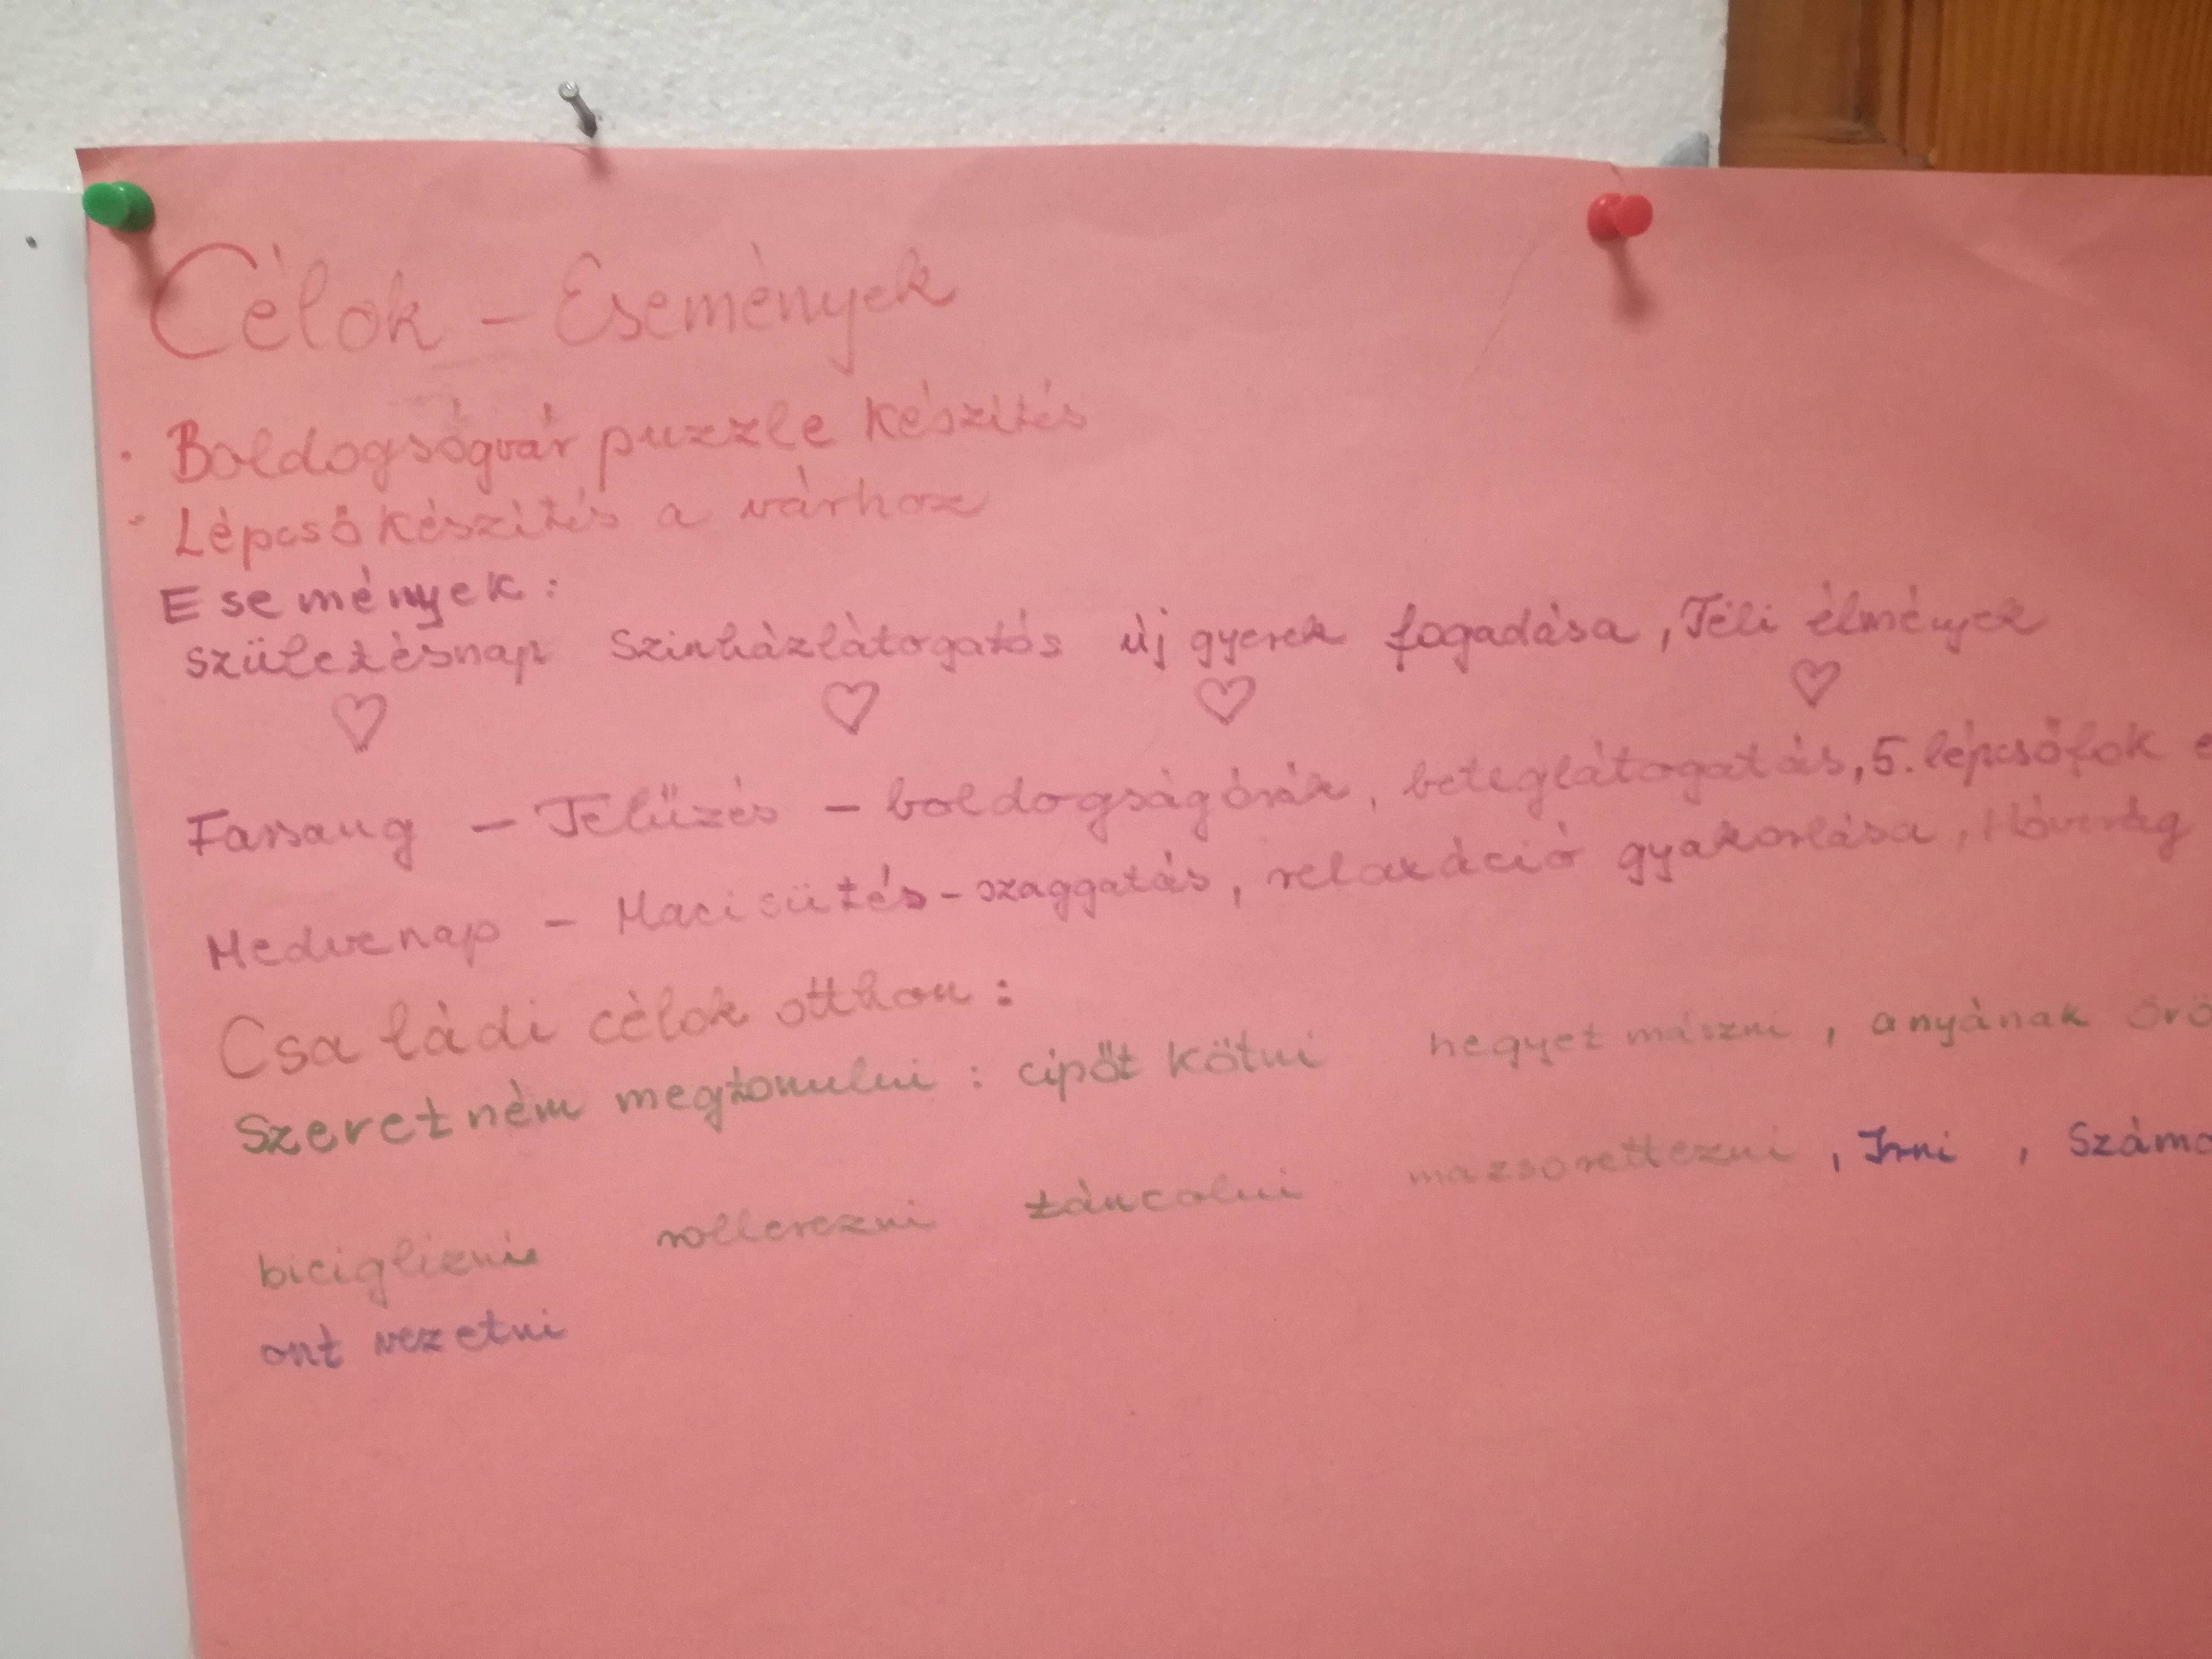 Célok - Események
• Boldogságvár puzzle készítés
• Lépcső készítés a várhoz
Események:
születésnap Szinházlátogatás új gyerek fogadása, Téli élmények
Farsang - Télűzés - boldogságórák, beteglátogatás, 5. lépcsőfok
Medvenap - Maci sütés - szaggatás, relaxáció gyakorlása, Hóvirág
Családi célok otthon:
Szeretném megtonulni: cipőt kötni hegyet mászni, anyának örö
biciglizni rollerezni táncolni mazsorettezni, Irni, Számo
ont vezetni